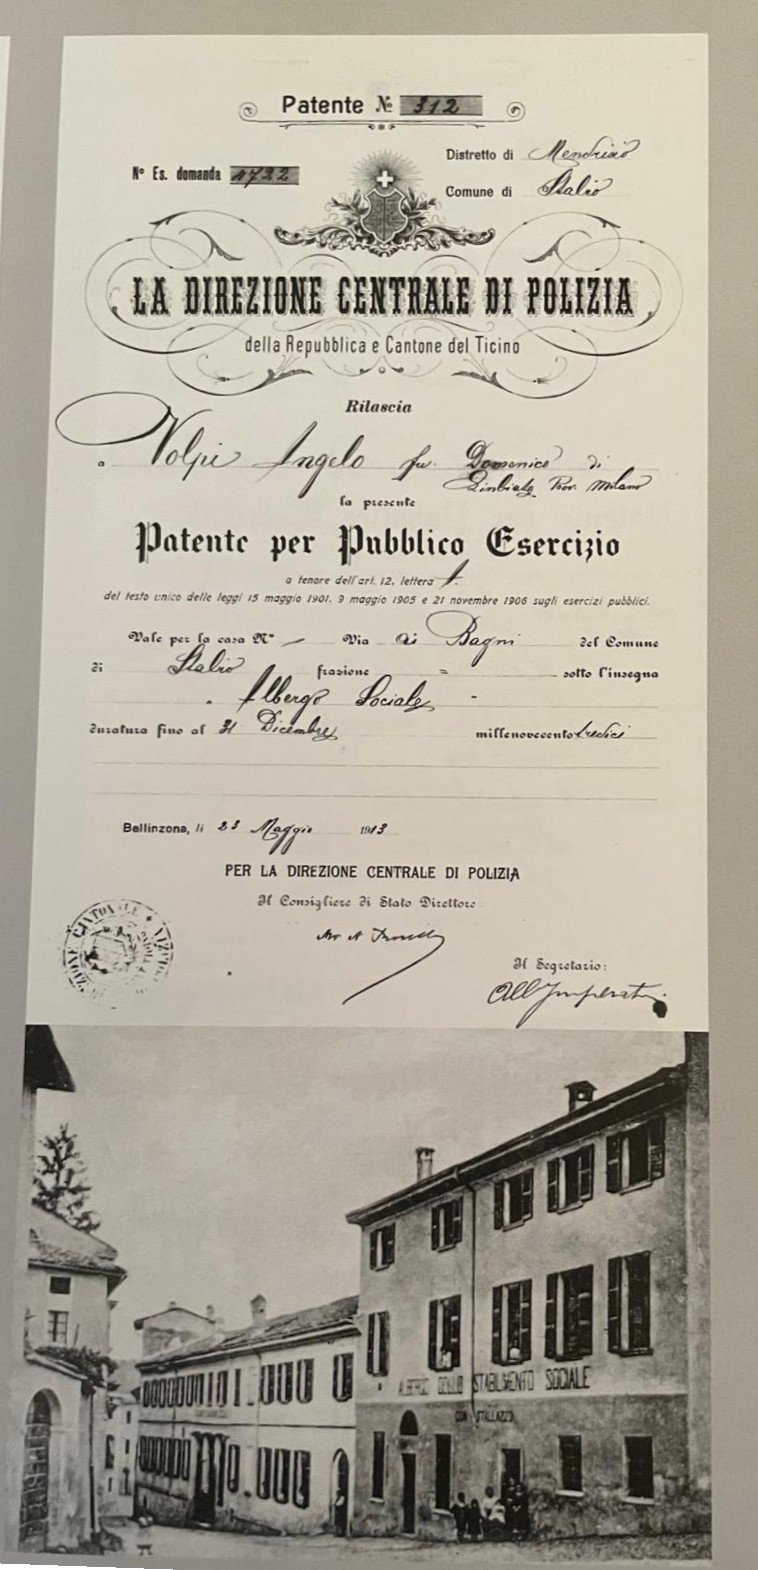 Patente № 312
Nº Es. domanda 4722
Distretto di Mendrisio
Comune di Stabio
LA DIREZIONE CENTRALE DI POLIZIA
della Repubblica e Cantone del Ticino
Rilascia
a Volpi Angelo fu Domenico di
Prov. Milano
la presente
Patente per Pubblico Esercizio
a tenore dell'art. 12, lettera
del testo unico delle leggi 15 maggio 1901, 9 maggio 1905 e 21 novembre 1906 sugli esercizi pubblici.
Vale per la casa Nº — Via ai Bagni del Comune
di Stabio frazione = sotto l'insegna
Albergo Sociale
duratura fino al 31 Dicembre millenovecento tredici
Bellinzona, li 23 Maggio 1913
PER LA DIREZIONE CENTRALE DI POLIZIA
Il Consigliere di Stato Direttore:
Il Segretario:
ALBERGO DELLO STABILIMENTO SOCIALE
CON STALLAZZO